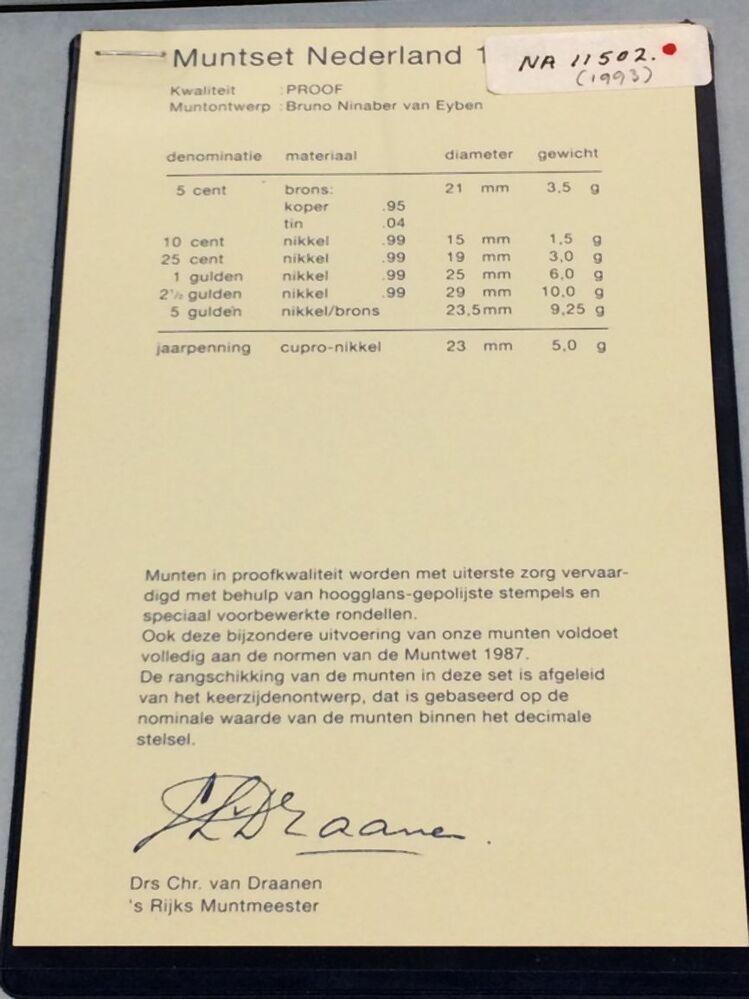 Muntset Nederland 1
NA 11502.
(1993)
Kwaliteit : PROOF
Muntontwerp : Bruno Ninaber van Eyben
denominatie materiaal diameter gewicht
5 cent brons: 21 mm 3,5 g
koper .95
tin .04
10 cent nikkel .99 15 mm 1,5 g
25 cent nikkel .99 19 mm 3,0 g
1 gulden nikkel .99 25 mm 6,0 g
2½ gulden nikkel .99 29 mm 10,0 g
5 gulden nikkel/brons 23,5 mm 9,25 g
jaarpenning cupro-nikkel 23 mm 5,0 g
Munten in proofkwaliteit worden met uiterste zorg vervaar-
digd met behulp van hoogglans-gepolijste stempels en
speciaal voorbewerkte rondellen.
Ook deze bijzondere uitvoering van onze munten voldoet
volledig aan de normen van de Muntwet 1987.
De rangschikking van de munten in deze set is afgeleid
van het keerzijdenontwerp, dat is gebaseerd op de
nominale waarde van de munten binnen het decimale
stelsel.
Draanen
Drs Chr. van Draanen
's Rijks Muntmeester